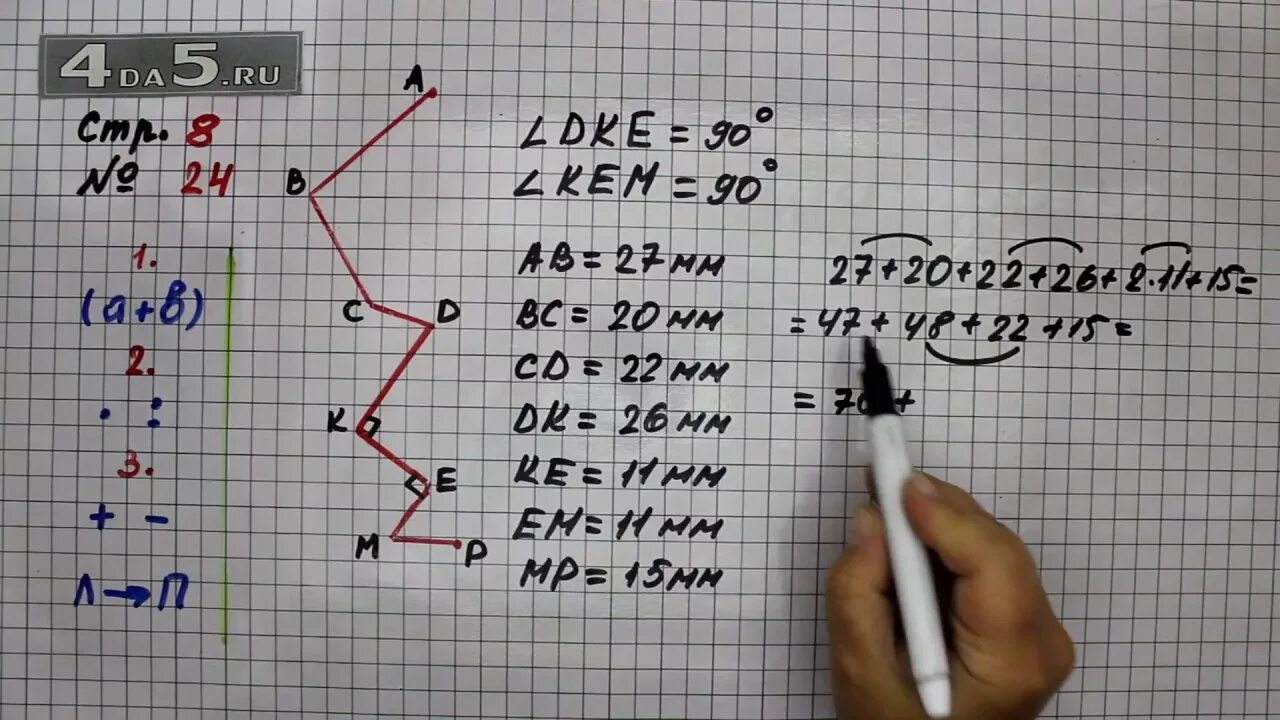 4DA5.RU
Стр. 8
№ 24
1.
(а+в)
2.
· :
3.
+ -
Л→П
A
B
C
D
K
E
M
P
∠DKE = 90°
∠KEM = 90°
AB = 27 мм
BC = 20 мм
CD = 22 мм
DK = 26 мм
KE = 11 мм
EM = 11 мм
MP = 15 мм
27+20+22+26+2·11+15=
=47+48+22+15=
= 70+